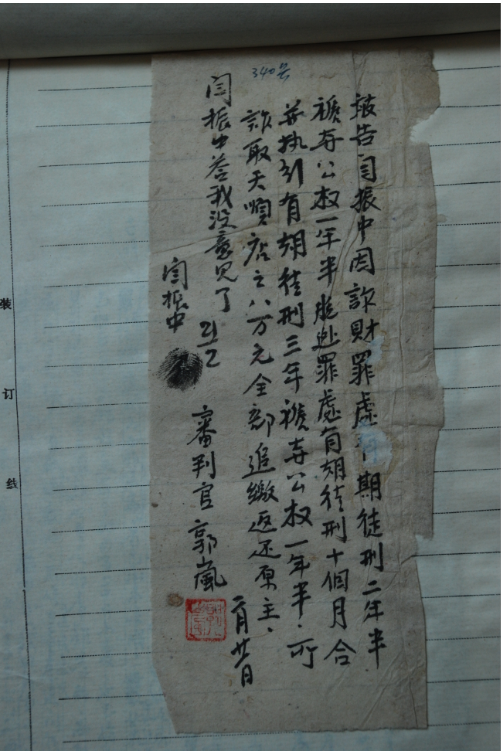 340号
被告闫振中因詐財罪處有期徒刑二年半
褫夺公权一年半脫逃罪處有期徒刑十個月合
并执行有期徒刑三年褫夺公权一年半．所
詐取天順店之八万元全部追繳返还原主．
闫振中答我没意见了
闫振中
審判官 郭嵐
二月廿日
装
订
线